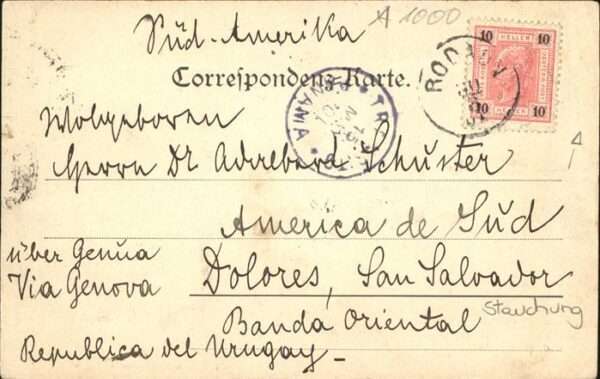 A 1000
Süd-Amerika
10 HELLER 10
10 10
Correspondenz-Karte.
RODAUN
TRANSITO
PANAMA
Wolgeboren
Herrn Dr Adalberd Schuster
America de Süd
über Genua
Dolores, San Salvador
Via Genova
Stauchung
Banda Oriental
Republica del Urugay